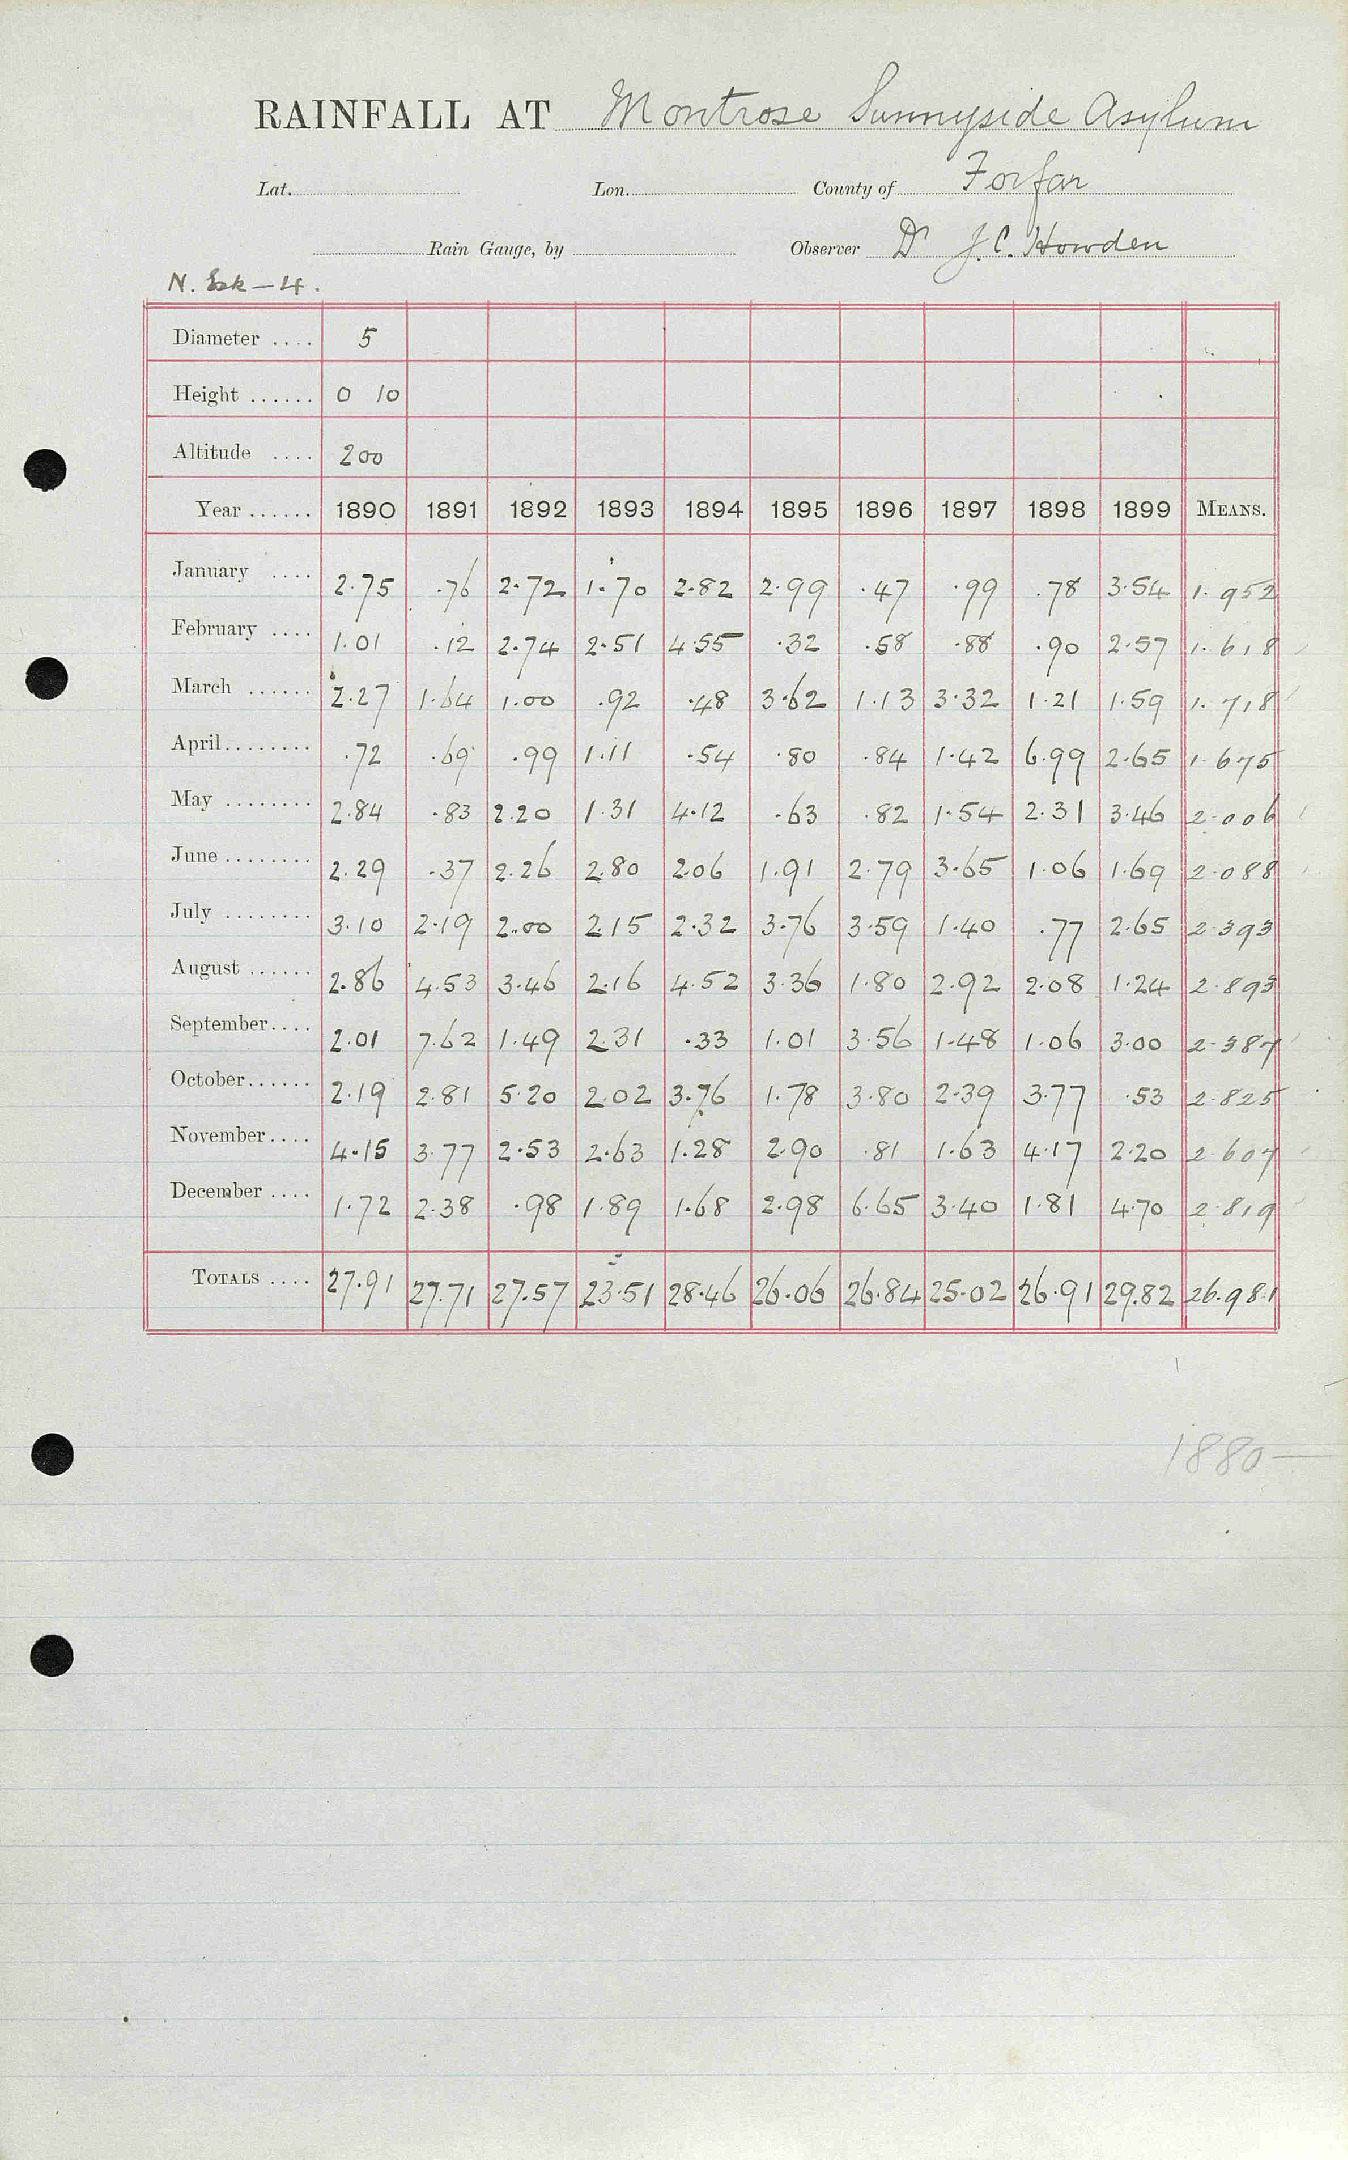 RAINFALL AT Montrose Sunnyside Asylum
Lat. Lon. County of Forfar
Rain Gauge, by Observer Dr J.C. Howden
N. Esk - 4.
Diameter .... 5
Height ...... 0 10
Altitude .... 200
Year ...... 1890 1891 1892 1893 1894 1895 1896 1897 1898 1899 MEANS.
January .... 2.75 .76 2.72 1.70 2.82 2.99 .47 .99 .78 3.54 1.952
February .... 1.01 .12 2.74 2.51 4.55 .32 .58 .88 .90 2.57 1.618
March ...... 2.27 1.64 1.00 .92 .48 3.62 1.13 3.32 1.21 1.59 1.718
April ........ .72 .69 .99 1.11 .54 .80 .84 1.42 6.99 2.65 1.675
May ........ 2.84 .83 2.20 1.31 4.12 .63 .82 1.54 2.31 3.46 2.006
June ........ 2.29 .37 2.26 2.80 2.06 1.91 2.79 3.65 1.06 1.69 2.088
July ........ 3.10 2.19 2.00 2.15 2.32 3.76 3.59 1.40 .77 2.65 2.393
August ...... 2.86 4.53 3.46 2.16 4.52 3.36 1.80 2.92 2.08 1.24 2.893
September .... 2.01 7.62 1.49 2.31 .33 1.01 3.56 1.48 1.06 3.00 2.387
October ...... 2.19 2.81 5.20 2.02 3.76 1.78 3.80 2.39 3.77 .53 2.825
November .... 4.15 3.77 2.53 2.63 1.28 2.90 .81 1.63 4.17 2.20 2.607
December .... 1.72 2.38 .98 1.89 1.68 2.98 6.65 3.40 1.81 4.70 2.819
TOTALS .... 27.91 27.71 27.57 23.51 28.46 26.06 26.84 25.02 26.91 29.82 26.981
1880 —